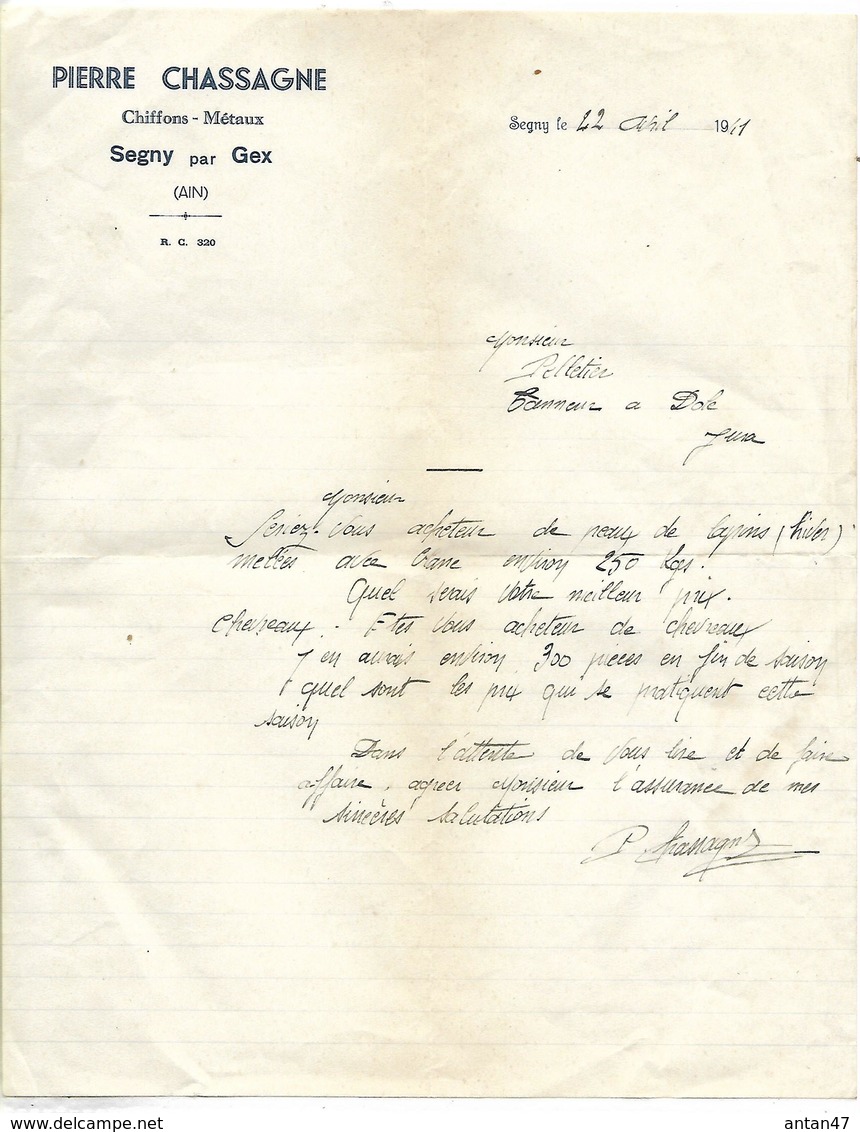 PIERRE CHASSAGNE
Chiffons - Métaux
Segny par Gex
(AIN)
R. C. 320
Segny le 22 avril 1941
Monsieur
Pelletier
Tanneur a Dole
Jura
Monsieur
Seriez-Vous acheteur de peaux de lapins (hiver)
melées avec blanc environ 250 Kgs.
Quel serais Votre meilleur prix.
Chevreaux. - Etes Vous acheteur de chevreaux
J en aurais environ 300 pieces en fin de saison
quel sont les prix qui se pratiquent cette
saison
Dans l'attente de Vous lire et de faire
affaire, agreer Monsieur l'assurance de mes
sincères salutations
P Chassagne
www.delcampe.net
antan47